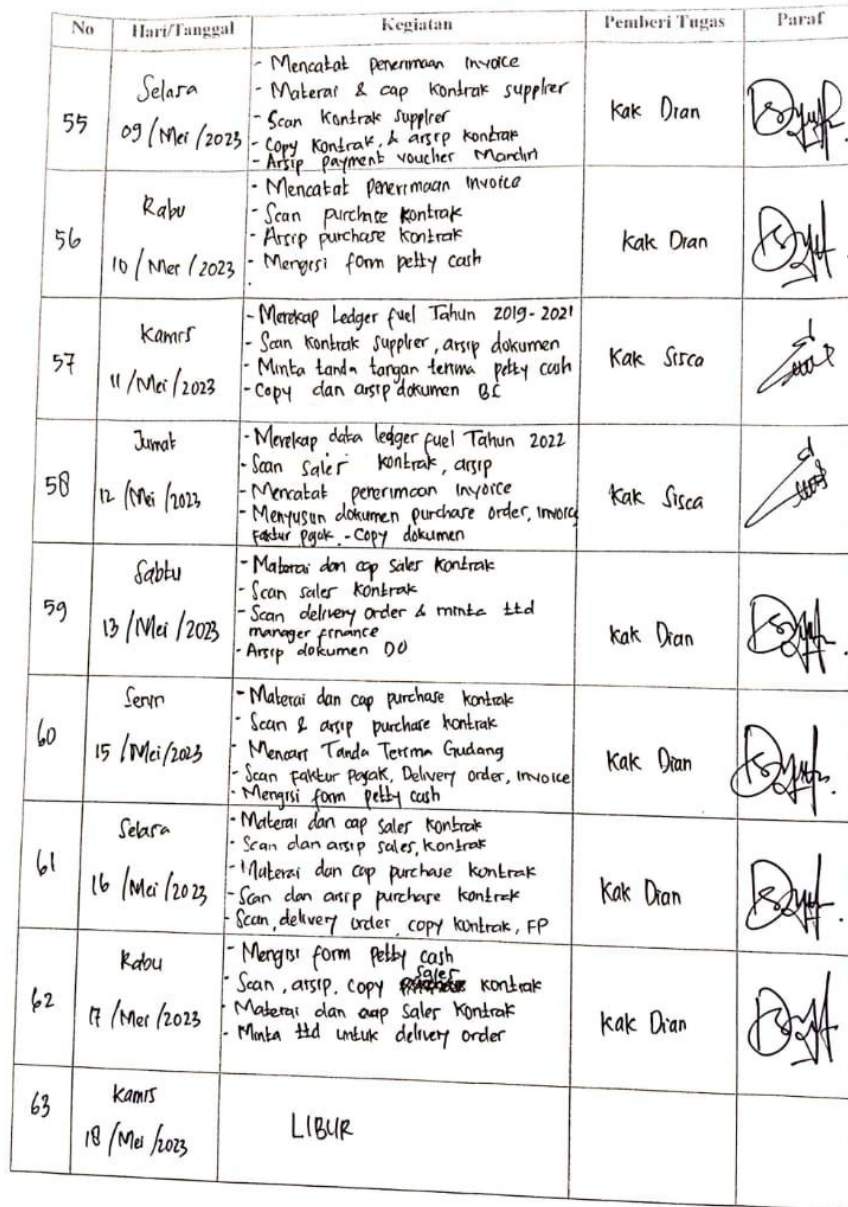 No Hari/Tanggal Kegiatan Pemberi Tugas Paraf
55
Selasa
09/Mei/2023
- Mencatat penerimaan invoice
- Materai & cap kontrak supplier
- Scan kontrak supplier
- Copy kontrak, & arsip kontrak
- Arsip payment voucher Mandiri
Kak Dian
56
Rabu
10/Mei/2023
- Mencatat penerimaan invoice
- Scan purchase kontrak
- Arsip purchase kontrak
- Mengisi form petty cash
Kak Dian
57
Kamis
11/Mei/2023
- Merekap Ledger fuel Tahun 2019-2021
- Scan kontrak supplier, arsip dokumen
- Minta tanda tangan terima petty cash
- Copy dan arsip dokumen BC
Kak Sisca
58
Jumat
12/Mei/2023
- Merekap data ledger fuel Tahun 2022
- Scan sales kontrak, arsip
- Mencatat penerimaan invoice
- Menyusun dokumen purchase order, invoice
faktur pajak. - Copy dokumen
Kak Sisca
59
Sabtu
13/Mei/2023
- Materai dan cap sales kontrak
- Scan sales kontrak
- Scan delivery order & minta ttd
manager finance
- Arsip dokumen DO
Kak Dian
60
Senin
15/Mei/2023
- Materai dan cap purchase kontrak
- Scan & arsip purchase kontrak
- Mencari Tanda Terima Gudang
- Scan faktur pajak, Delivery order, invoice
- Mengisi form petty cash
Kak Dian
61
Selasa
16/Mei/2023
- Materai dan cap sales kontrak
- Scan dan arsip sales, kontrak
- Materai dan cap purchase kontrak
- Scan dan arsip purchase kontrak
- Scan, delivery order, copy kontrak, FP
Kak Dian
62
Rabu
17/Mei/2023
- Mengisi form petty cash
- Scan, arsip, copy sales kontrak
- Materai dan cap sales kontrak
- Minta ttd untuk delivery order
Kak Dian
63
Kamis
18/Mei/2023
LIBUR